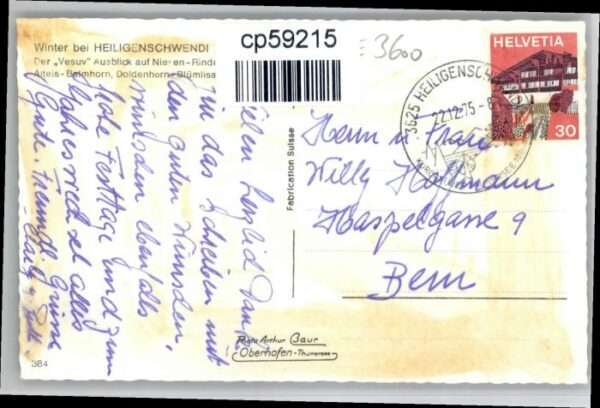 Winter bei HEILIGENSCHWENDI
Der „Vesuv" Ausblick auf Niesen-Rindi
Altels-Balmhorn, Doldenhorn-Blümlisa
cp59215
3600
Vielen herzlid Dank
für das Schreiben mit
den guten Wünschen,
wünschen ebenfalls
frohe Festtage und zum
Jahreswechsel alles
Gute. Freundl. Grüsse
Fabrication Suisse
HELVETIA
30
3625 HEILIGENSCHW
22.12.75-8
Herrn u Frau
Willy Hofmann
Haspelgasse 9
Bern
Photo Arthur Baur
Oberhofen-Thunersee
384